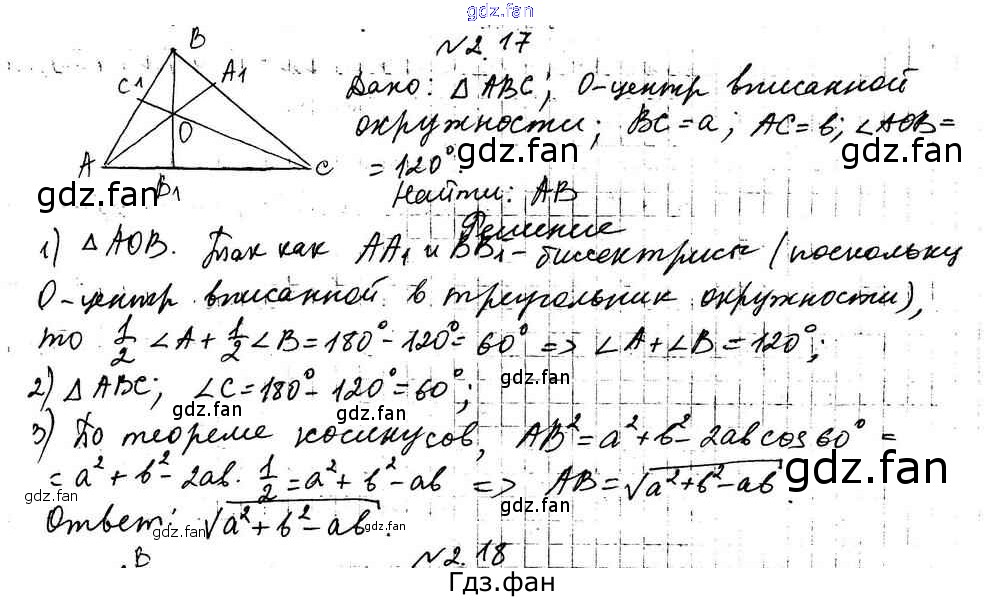 gdz.fan
№2.17
B
C1
A1
O
A
B1
C
Дано: △ABC; O-центр вписанной
окружности; BC=a; AC=b; ∠AOB=
=120°.
gdz.fan
gdz.fan
gdz.fan
Найти: AB
Решение
1) △AOB. Так как AA1 и BB1 - биссектрисы (поскольку
O-центр вписанной в треугольник окружности),
то 1/2 ∠A + 1/2 ∠B = 180° - 120° = 60° => ∠A + ∠B = 120°;
2) △ABC; ∠C = 180° - 120° = 60°;
gdz.fan
gdz.fan
3) По теореме косинусов, AB² = a² + b² - 2ab cos 60° =
= a² + b² - 2ab · 1/2 = a² + b² - ab => AB = √(a² + b² - ab).
gdz.fan
gdz.fan
gdz.fan
Ответ: √(a² + b² - ab).
gdz.fan
gdz.fan
B
№2.18
Гдз.фан